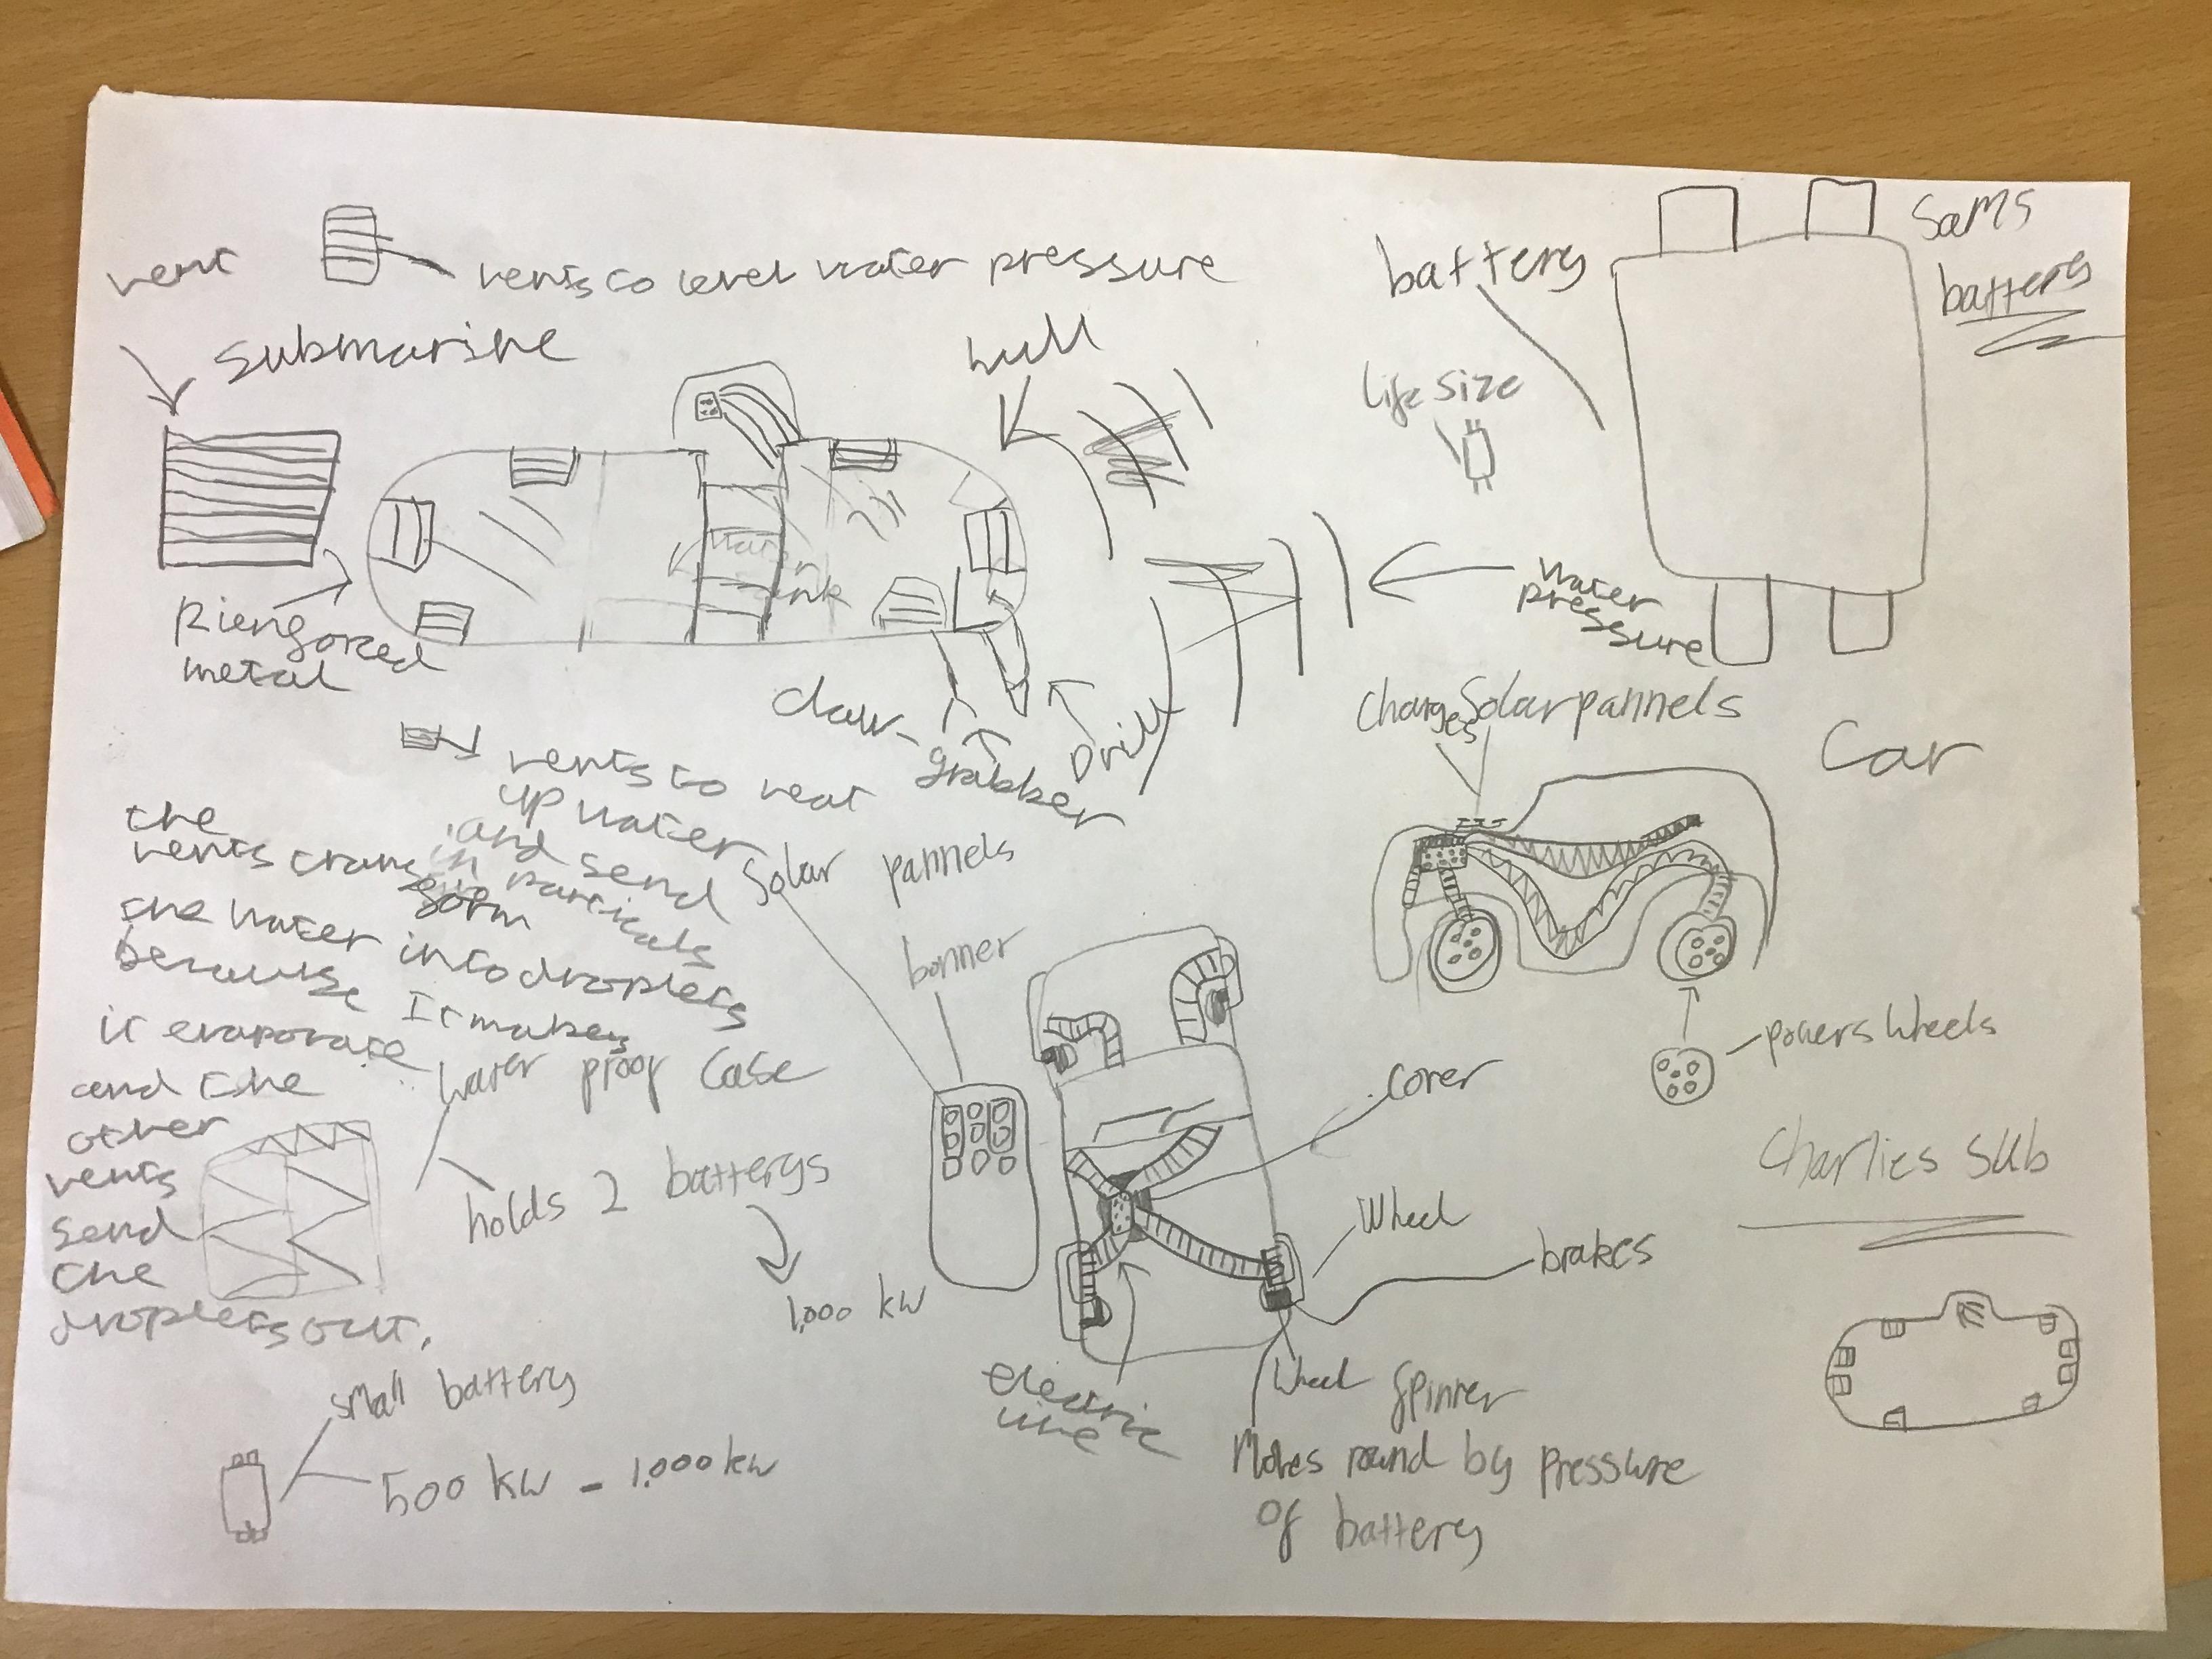 vent
vents to level water pressure
submarine
hull
battery
Sams
battery
life size
water
pressure
Riengorced
metal
claw-
grabber
Drill
vents to heat
up water
and send
in particals
the
vents transform
the water into droplets
because It makes
it evaporate
and the
other
vents
send
the
droplets out.
Charges
Solar pannels
Car
powers wheels
Charlies sub
Solar pannels
bonner
cover
Wheel
brakes
Wheel spinner
Moves round by pressure
of battery
electric
line
water proof case
holds 2 batterys
1,000 kw
small battery
500 kw - 1,000 kw